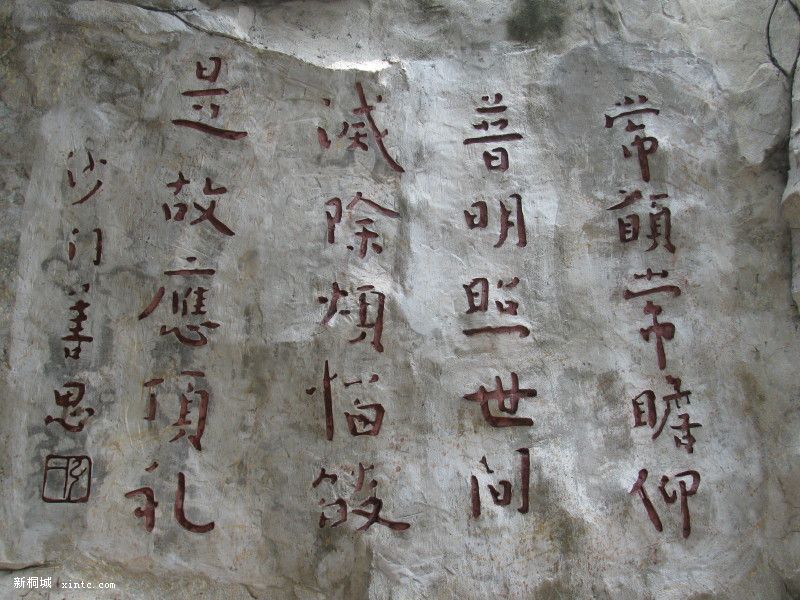 常願常瞻仰
普明照世间
滅除煩惱燄
是故應頂礼
沙门善思
新桐城 xintc.com